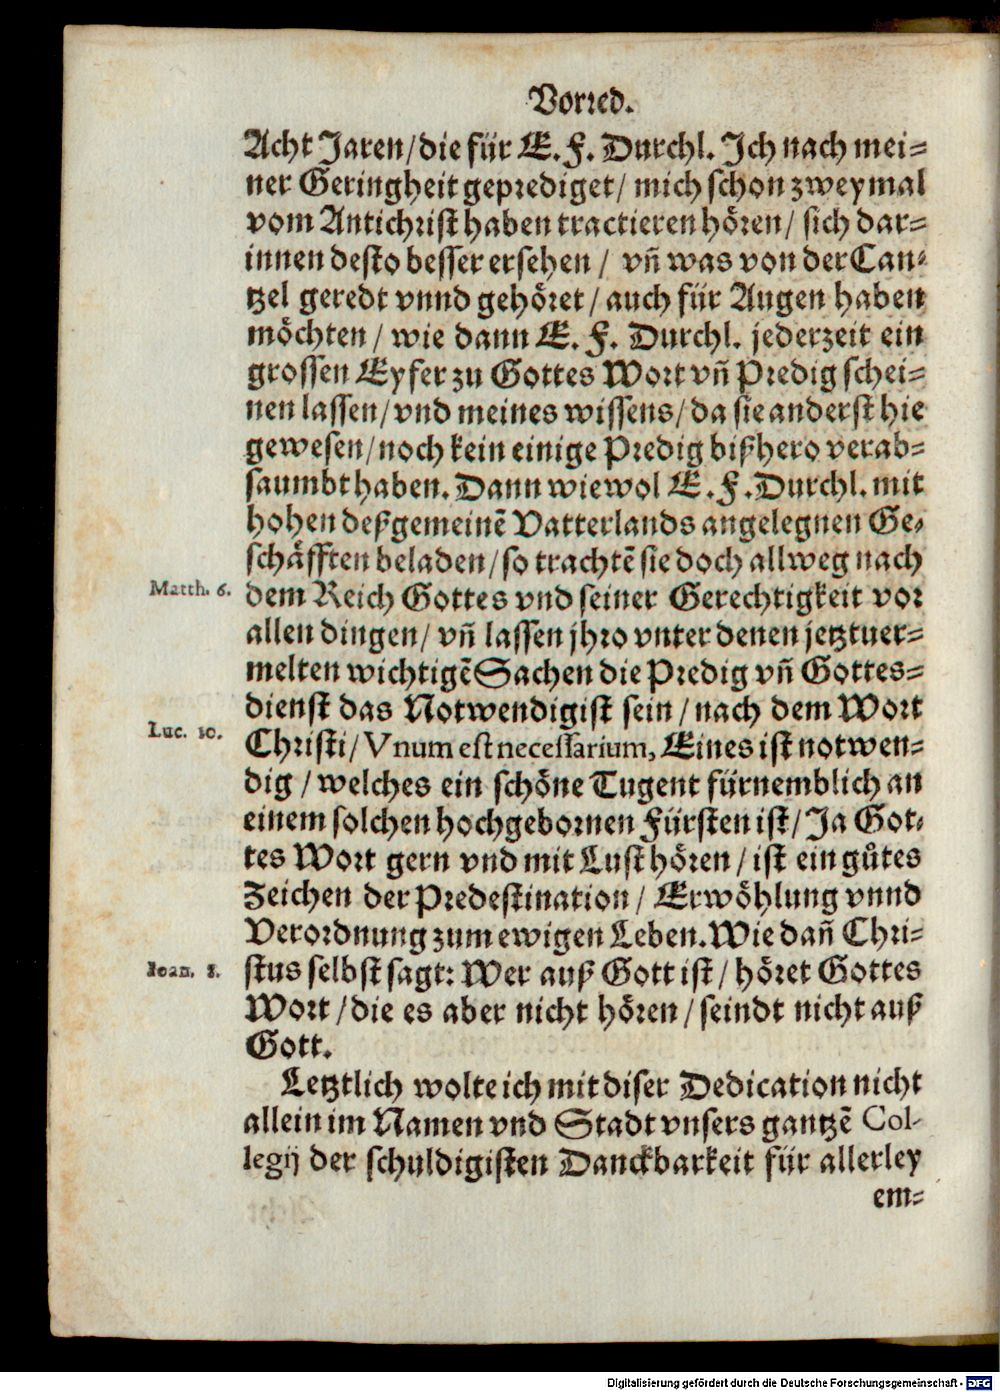 Vorred.
Acht Jaren/die für E. F. Durchl. Ich nach mei-
ner Geringheit geprediget/ mich schon zweymal
vom Antichrist haben tractieren hören/ sich dar-
innen desto besser ersehen/ vñ was von der Can-
tzel geredt vnnd gehöret/ auch für Augen haben
möchten/ wie dann E. F. Durchl. jederzeit ein
grossen Eyfer zu Gottes Wort vñ Predig schei-
nen lassen/ vnd meines wissens/ da sie anderst hie
gewesen/ noch kein einige Predig bißhero verab-
saumbt haben. Dann wiewol E. F. Durchl. mit
hohen deß gemeinẽ Vatterlands angelegnen Ge-
schäfften beladen/ so trachtẽ sie doch allweg nach
Matth. 6. dem Reich Gottes vnd seiner Gerechtigkeit vor
allen dingen/ vñ lassen jhro vnter denen jetztuer-
melten wichtigẽ Sachen die Predig vñ Gottes-
dienst das Notwendigist sein/ nach dem Wort
Luc. 10. Christi/ Vnum est necessarium, Eines ist notwen-
dig/ welches ein schöne Tugent fürnemblich an
einem solchen hochgebornen Fürsten ist/ Ja Got-
tes Wort gern vnd mit Lust hören/ ist ein gůtes
Zeichen der Predestination/ Erwöhlung vnnd
Verordnung zum ewigen Leben. Wie dañ Chri-
Ioan. 8. stus selbst sagt: Wer auß Gott ist/ höret Gottes
Wort/ die es aber nicht hören/ seindt nicht auß
Gott.
Letztlich wolte ich mit diser Dedication nicht
allein im Namen vnd Stadt vnsers gantzẽ Col-
legij der schuldigisten Danckbarkeit für allerley
em-
Digitalisierung gefördert durch die Deutsche Forschungsgemeinschaft - DFG